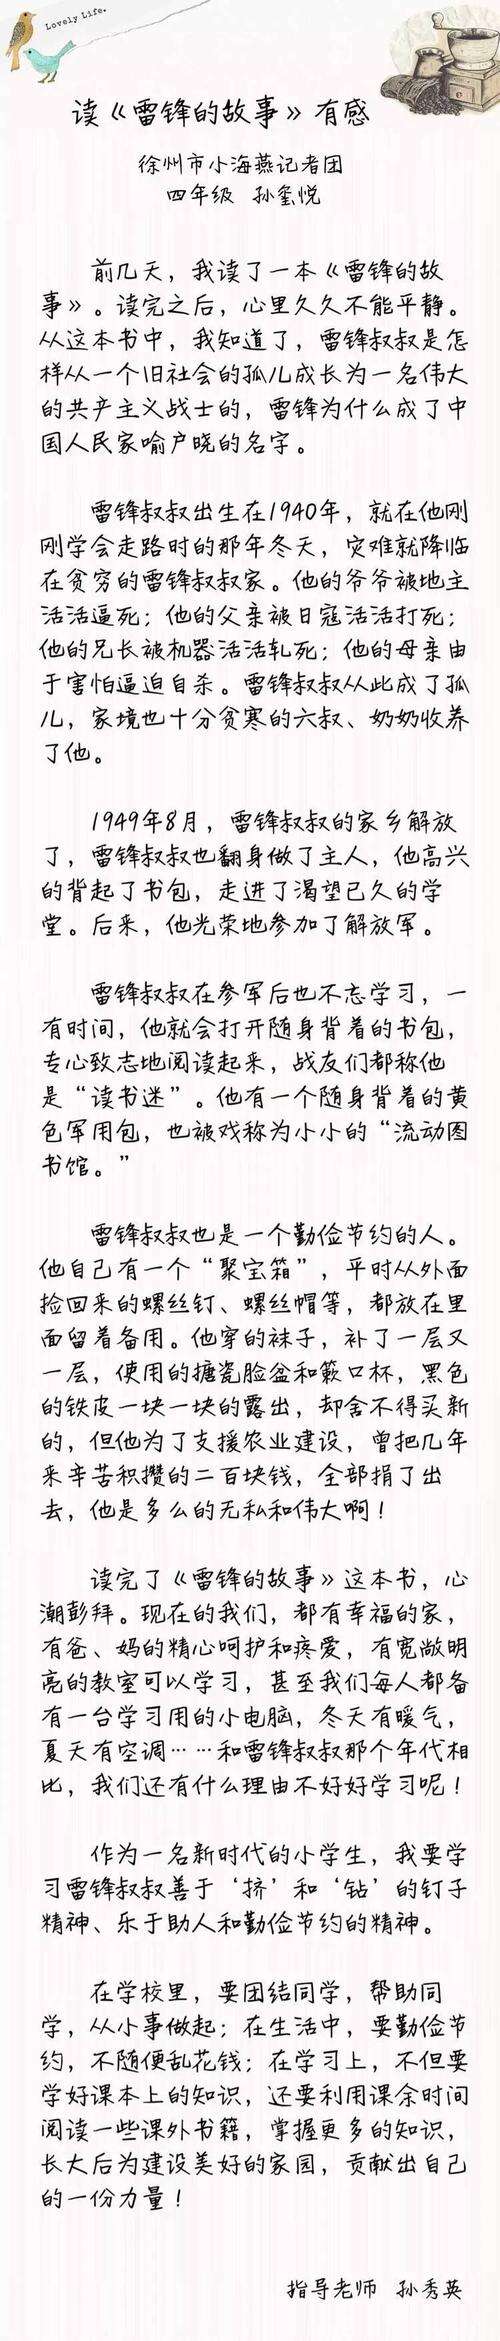 Lovely Life.
读《雷锋的故事》有感
徐州市小海燕记者团
四年级 孙玺悦
前几天，我读了一本《雷锋的故
事》。读完之后，心里久久不能平静。
从这本书中，我知道了，雷锋叔叔是怎
样从一个旧社会的孤儿成长为一名伟大
的共产主义战士的，雷锋为什么成了中
国人民家喻户晓的名字。
雷锋叔叔出生在1940年，就在他刚
刚学会走路时的那年冬天，灾难就降临
在贫穷的雷锋叔叔家。他的爷爷被地主
活活逼死；他的父亲被日寇活活打死；
他的兄长被机器活活轧死；他的母亲由
于害怕逼迫自杀。雷锋叔叔从此成了孤
儿，家境也十分贫寒的六叔、奶奶收养
了他。
1949年8月，雷锋叔叔的家乡解放
了，雷锋叔叔也翻身做了主人，他高兴
的背起了书包，走进了渴望已久的学
堂。后来，他光荣地参加了解放军。
雷锋叔叔在参军后也不忘学习，一
有时间，他就会打开随身背着的书包，
专心致志地阅读起来，战友们都称他
是“读书迷”。他有一个随身背着的黄
色军用包，也被戏称为小小的“流动图
书馆。”
雷锋叔叔也是一个勤俭节约的人。
他自己有一个“聚宝箱”，平时从外面
捡回来的螺丝钉、螺丝帽等，都放在里
面留着备用。他穿的袜子，补了一层又
一层，使用的搪瓷脸盆和簌口杯，黑色
的铁皮一块一块的露出，却舍不得买新
的，但他为了支援农业建设，曾把几年
来辛苦积攒的二百块钱，全部捐了出
去，他是多么的无私和伟大啊！
读完了《雷锋的故事》这本书，心
潮彭拜。现在的我们，都有幸福的家，
有爸、妈的精心呵护和疼爱，有宽敞明
亮的教室可以学习，甚至我们每人都备
有一台学习用的小电脑，冬天有暖气，
夏天有空调……和雷锋叔叔那个年代相
比，我们还有什么理由不好好学习呢！
作为一名新时代的小学生，我要学
习雷锋叔叔善于‘挤’和‘钻’的钉子
精神、乐于助人和勤俭节约的精神。
在学校里，要团结同学，帮助同
学，从小事做起；在生活中，要勤俭节
约，不随便乱花钱；在学习上，不但要
学好课本上的知识，还要利用课余时间
阅读一些课外书籍，掌握更多的知识，
长大后为建设美好的家园，贡献出自己
的一份力量！
指导老师 孙秀英